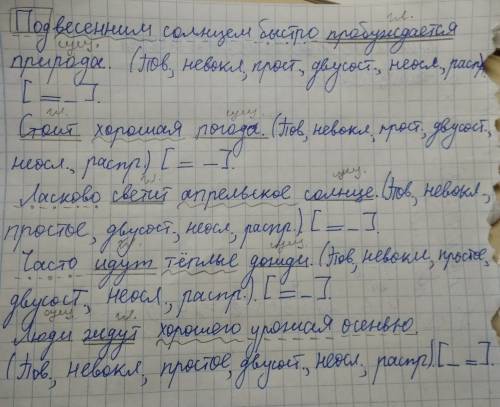 Под весенним солнцем быстро пробуждается
природа. (Пов, невокл, прост, двусост., неосл, распр,
[ = – ].
Стоит хорошая погода. (Пов, невокл, прост, двусост,
неосл., распр.) [ = – ].
Ласково светит апрельское солнце. (Пов, невокл,
простое, двусост, неосл, распр.) [ = – ].
Часто идут тёплые дожди. (Пов, невокл, простое,
двусост, неосл., распр.). [ = – ].
Люди ждут хорошего урожая осенью.
(Пов, невокл, простое, двусост., неосл, распр). [ – = ].